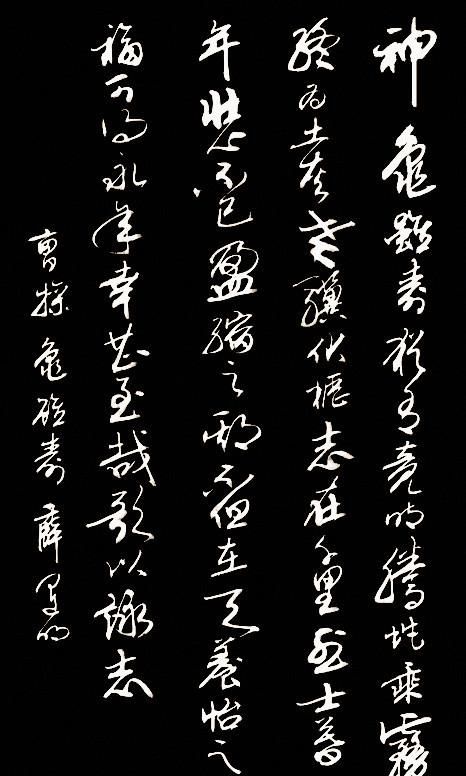 神龜雖壽猶有竟時騰虵乘霧
終为土灰老驥伏櫪志在千里烈士暮
年壯心不已盈縮之期不但在天養怡之
福可得永年幸甚至哉歌以詠志
曹操龜雖壽 薛